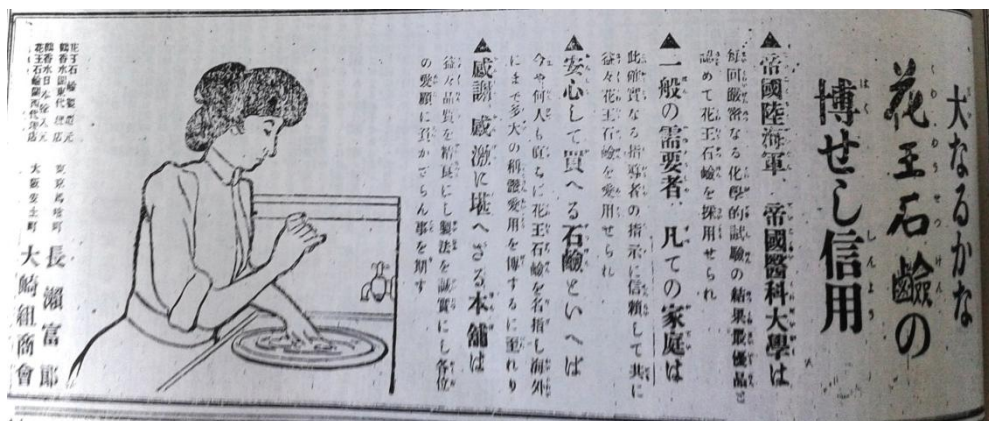 大なるかな
花王石鹼の
博せし信用
▲帝國陸海軍、帝國醫科大學は
毎回嚴密なる化學的試驗の結果最優品と
認めて花王石鹼を採用せられ
▲一般の需要者、凡ての家庭は
此確實なる指導者の指示に信賴して共に
益々花王石鹼を愛用せられ
▲安心して買へる石鹼といへば
今や何人も直ちに花王石鹼を名指し海外
にまで多大の稱讃愛用を博するに至れり
▲感謝、感激に堪へざる本舖は
益々品質を精良にし製法を誠實にし各位
の愛顧に負かざらん事を期す
花王石鹼製造元
鶴香水關東代理店
東京馬喰町
長瀨富郎
鶴香水日本輸入元
花王石鹼關西代理店
大阪安土町
大崎組商會